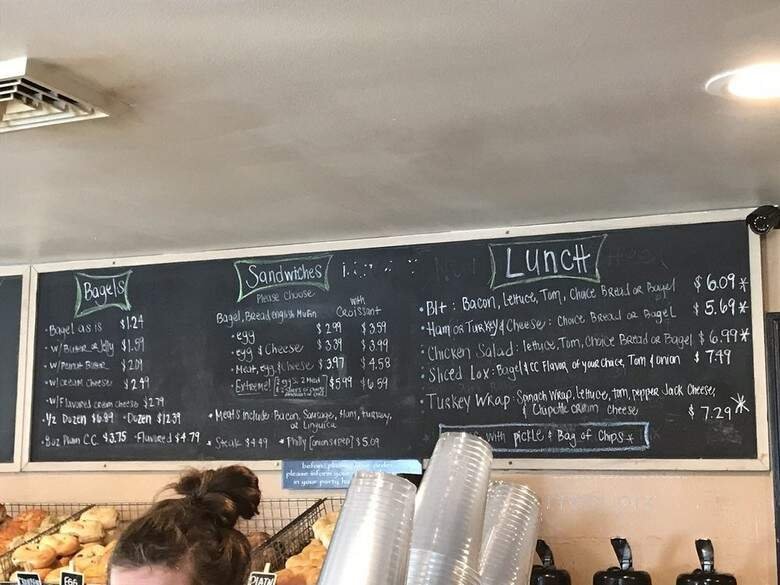 Bagels
• Bagel as is $1.24
• w/ Butter or Jelly $1.59
• w/ Peanut Butter $2.09
• w/ Cream Cheese $2.49
• w/ Flavored Cream Cheese $2.79
• 1/2 Dozen $6.99 • Dozen $12.39
• 8oz Plain CC $3.75 • Flavored $4.79
Sandwiches
Please Choose
Bagel, Bread, English Muffin
with Croissant
• egg $2.99 $3.59
• egg & Cheese $3.39 $3.99
• Meat, egg, & Cheese $3.97 $4.58
• Extreme! 2 eggs, 2 Meat $5.99 $6.59
• Meats include: Bacon, Sausage, Ham, turkey,
or Linguica
• Steak $4.49 • Philly [onions & pep] $5.09
Lunch
• Blt: Bacon, Lettuce, Tom, Choice Bread or Bagel $6.09 *
• Ham or Turkey & Cheese: Choice Bread or Bagel $5.69 *
• Chicken Salad: lettuce, Tom, Choice Bread or Bagel $6.99 *
• Sliced Lox: Bagel & CC Flavor of your Choice, Tom & onion $7.49
• Turkey Wrap: Spinach Wrap, lettuce, tom, pepper Jack Cheese,
& Chipotle cream cheese $7.29 *
with pickle & Bag of Chips *
before
please inform your
in your party
EGG
PLAIN